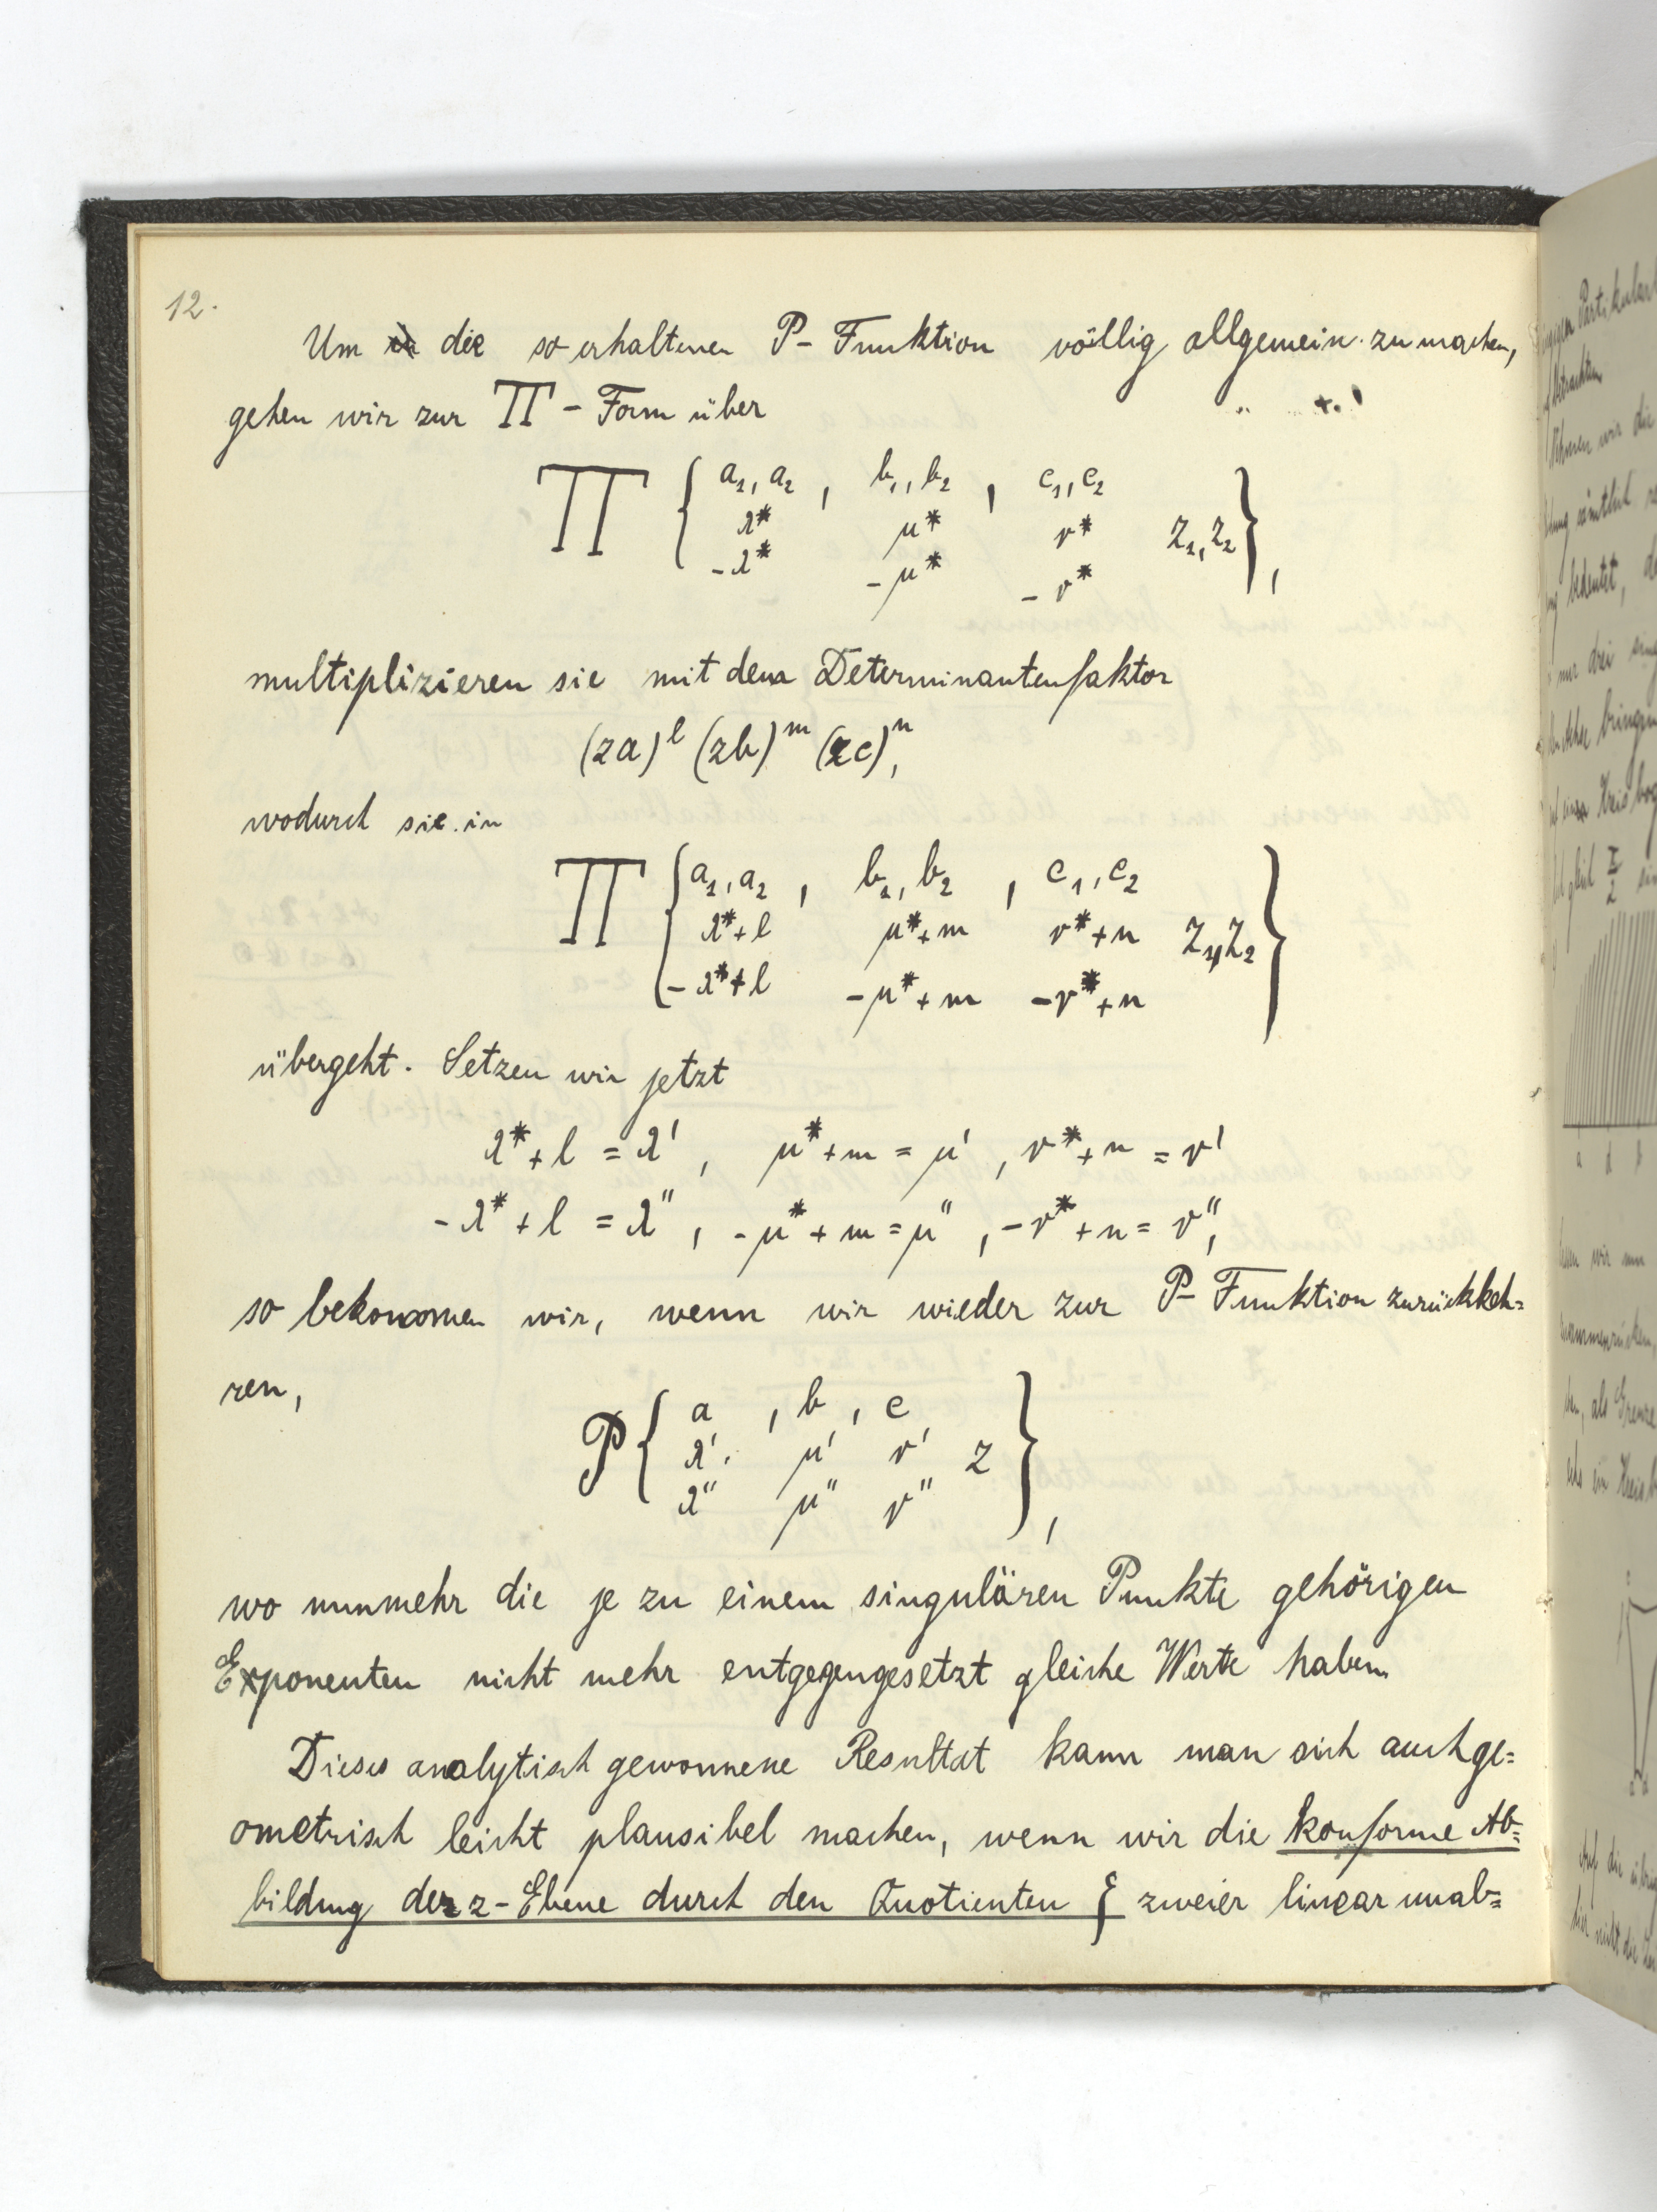 12.
Um die so erhaltenen P- Funktion völlig allgemein zu machen,
gehen wir zur Π - Form über
Π { a₁, a₂ , b₁, b₂ , c₁, c₂
λ* μ* ν* z₁, z₂ } ,
-λ* -μ* -ν*
multiplizieren sie mit dem Determinantenfaktor
(za)ˡ (zb)ᵐ (zc)ⁿ,
wodurch sie in
Π { a₁, a₂ , b₁, b₂ , c₁, c₂
λ*+l μ*+m ν*+n z₁, z₂ }
-λ*+l -μ*+m -ν*+n
übergeht. Setzen wir jetzt
λ*+l = λ' , μ*+m = μ' , ν*+n = ν'
-λ*+l = λ" , -μ*+m = μ" , -ν*+n = ν",
so bekommen wir, wenn wir wieder zur P- Funktion zurückkeh=
ren,
P { a , b , c
λ' μ' ν' z } ,
λ" μ" ν"
wo nunmehr die je zu einem singulären Punkte gehörigen
Exponenten nicht mehr entgegengesetzt gleiche Werte haben.
Dieses analytisch gewonnene Resultat kann man sich auch ge=
ometrisch leicht plausibel machen, wenn wir die konforme Ab=
bildung der z-Ebene durch den Quotienten ξ zweier linear unab=